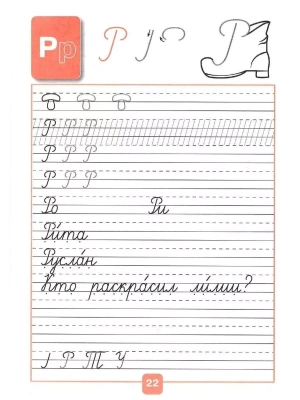 Рр Р Р
Р Р Р
Р Р Р
Р Р Р
Ро Ри
Ри́та
Русла́н
Кто раскра́сил
Р Т У
22